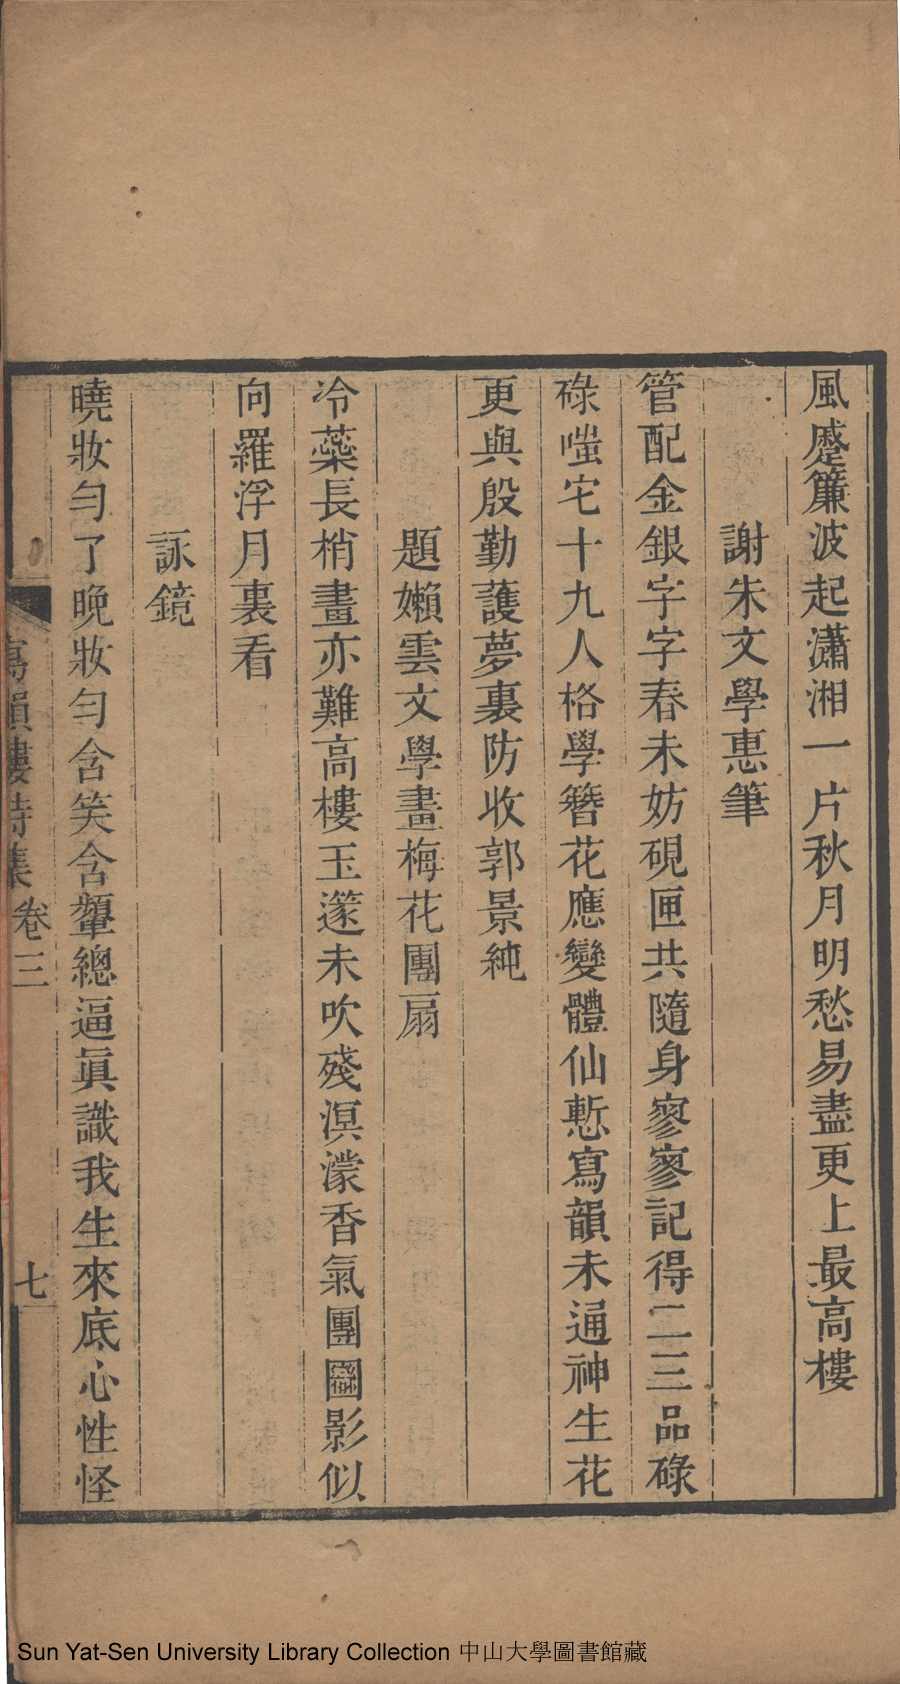 風蹙簾波起瀟湘一片秋月明愁易盡更上最高樓
謝朱文學惠筆
管配金銀字字春未妨硯匣共隨身寥寥記得二三品碌
碌嗤它十九人格學簪花應變體仙慙寫韻未通神生花
更與殷勤護夢裏防收郭景純
題嬾雲文學畫梅花團扇
冷蘂長梢畫亦難高樓玉篴未吹殘溟濛香氣團圞影似
向羅浮月裏看
詠鏡
曉妝勻了晚妝勻含笑含顰總逼眞識我生來底心性怪
寫韻樓詩集 卷三 七
Sun Yat-Sen University Library Collection 中山大學圖書館藏